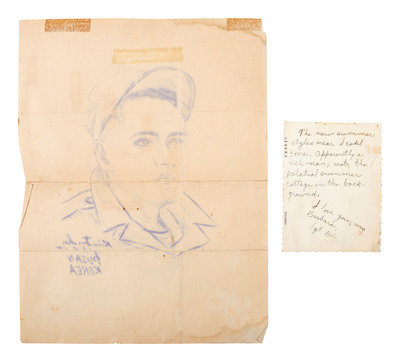 PUSAN
KOREA
The new summer
styles near Seoul,
Korea. Apparently a
rich man, note the
palatial summer
cottage in the back
ground.
I love you, my
Barbara,